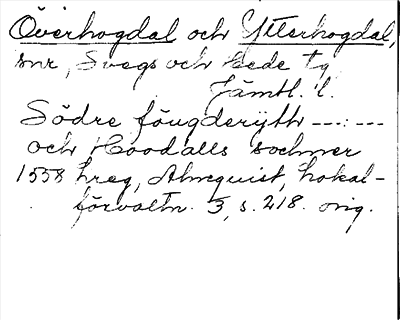 Överhogdal och Ytterhogdal,
snr, Svegs och Hede tg
Jämtl. l.
Södre föugderÿth ---:---
och Hoodalls sochner
1558 hreg, Almquist, Lokal-
förvaltn. 3, s. 218. orig.